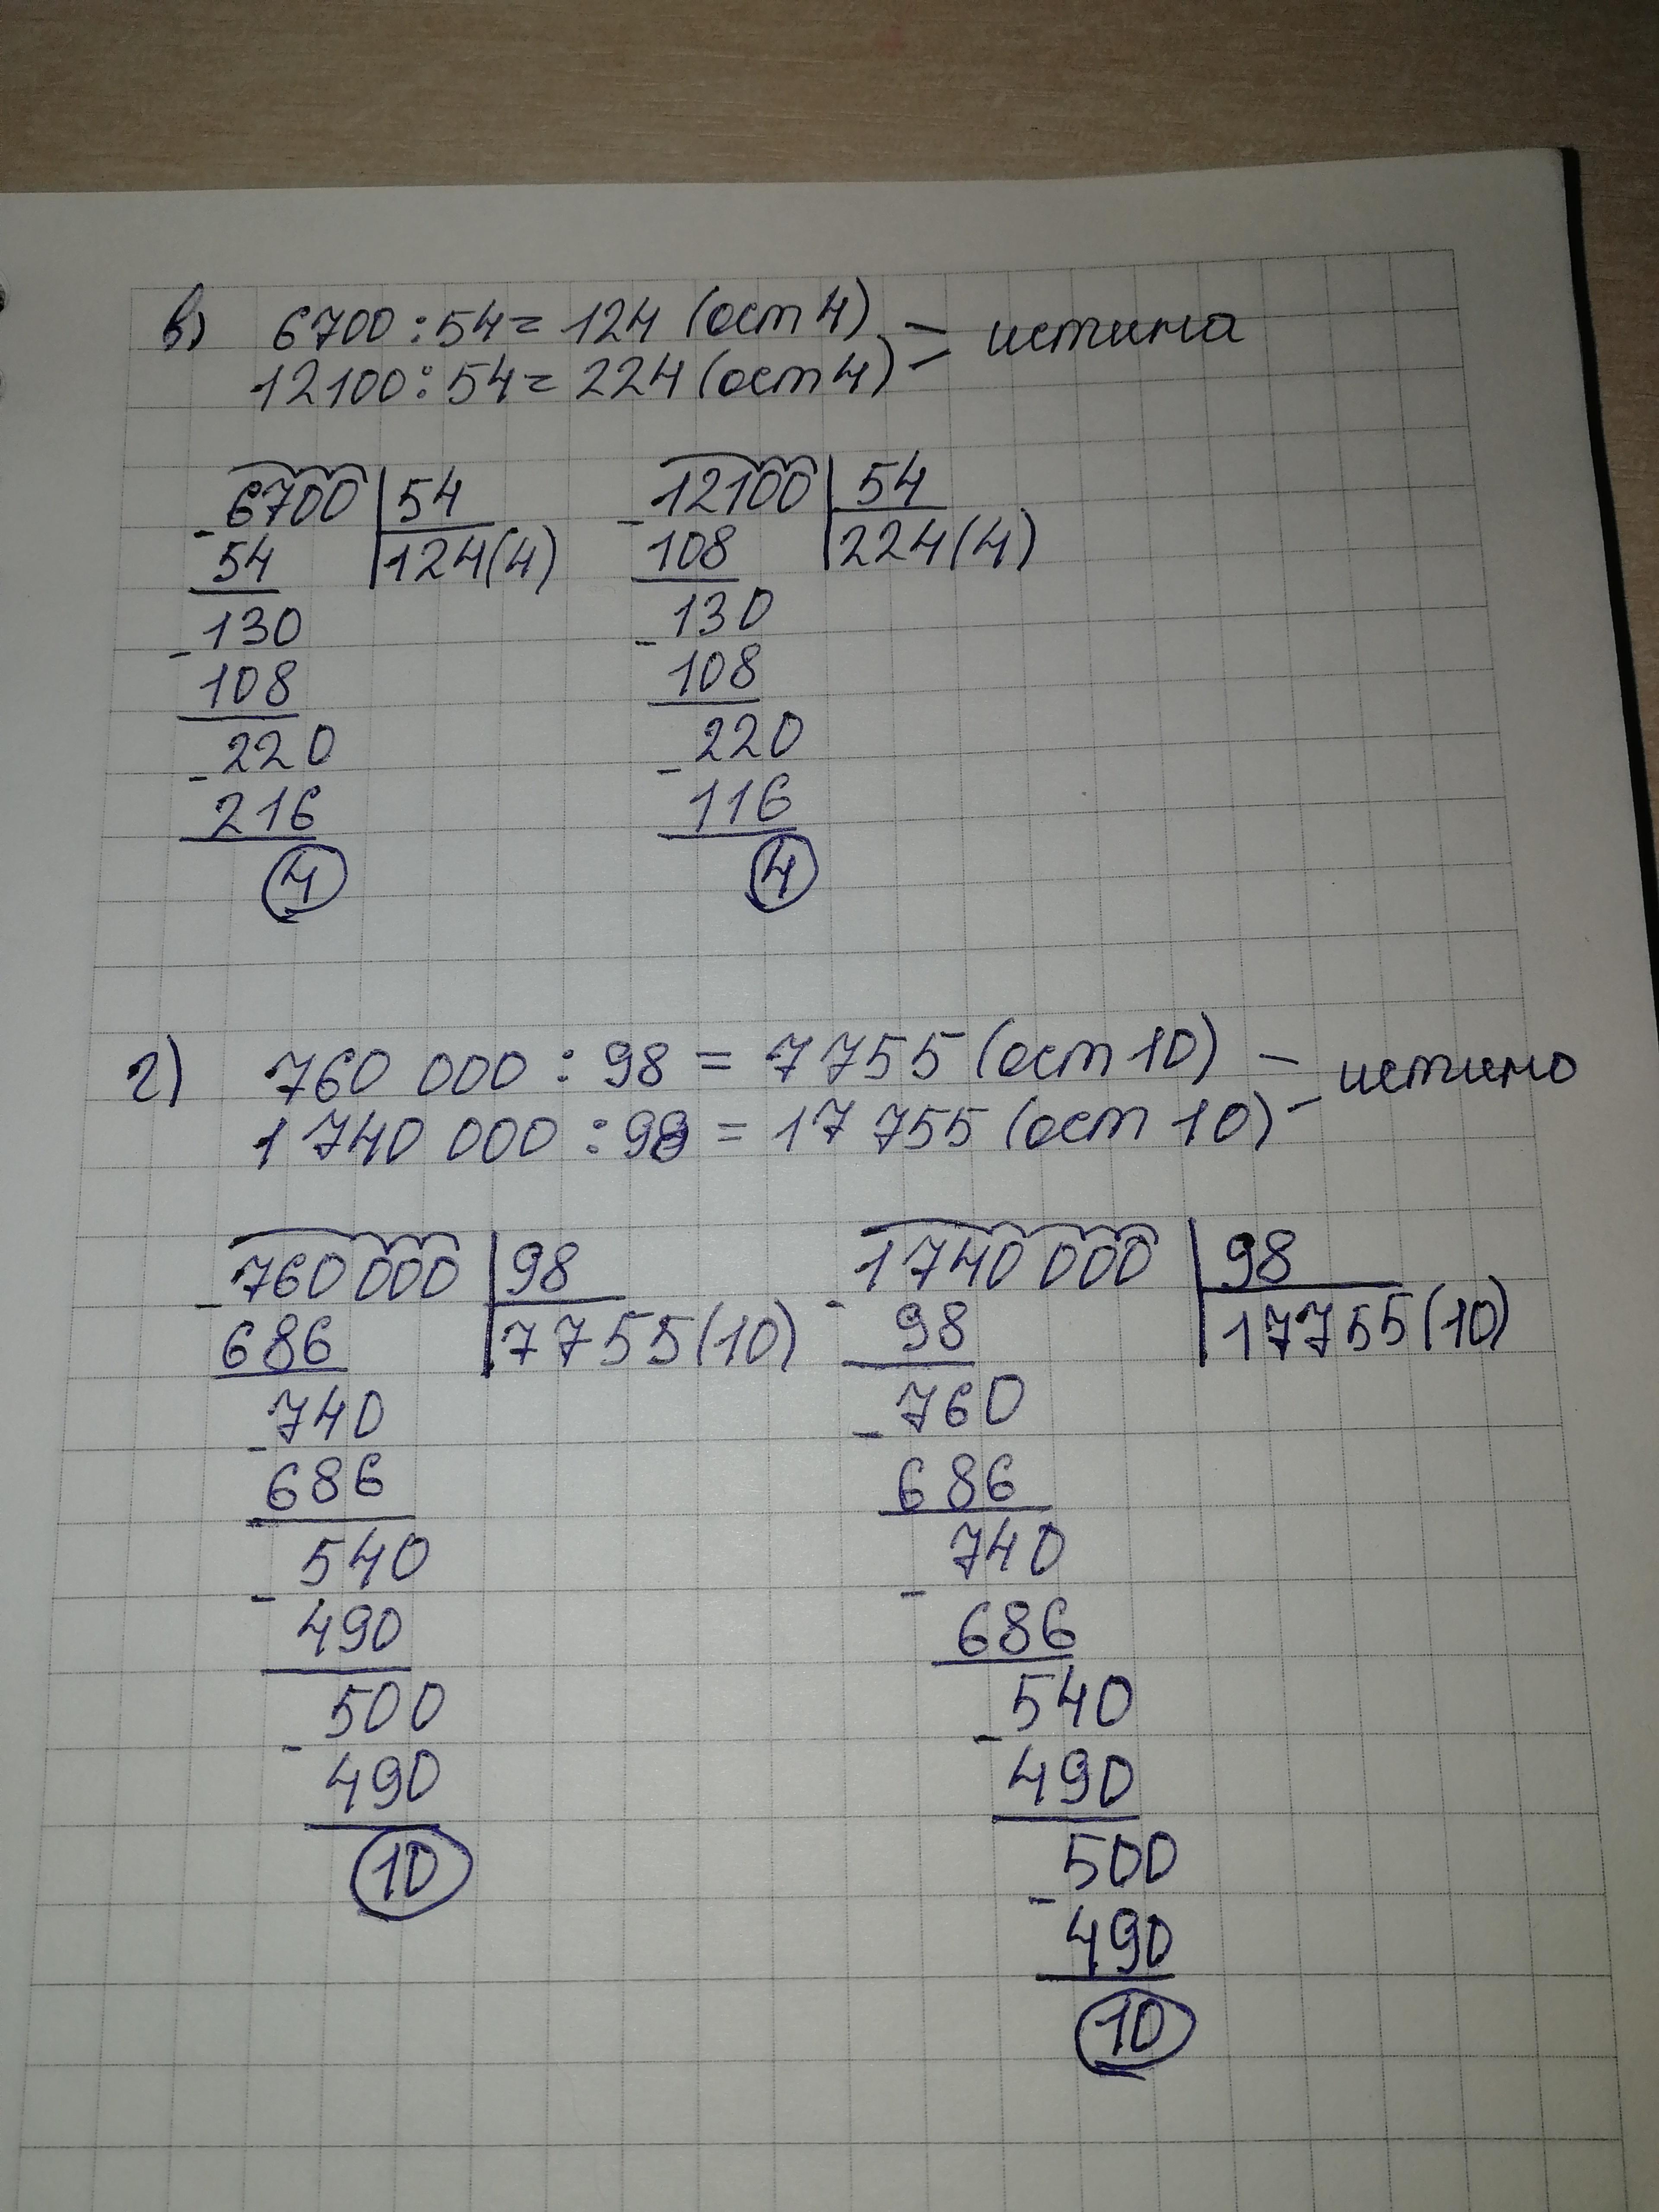 в) 6700 : 54 = 124 (ост 4) - истина
12100 : 54 = 224 (ост 4) -
- 6700 | 54
54 | 124(4)
- 130
108
- 220
216
4
- 12100 | 54
108 | 224(4)
- 130
108
- 220
116
4
г) 760 000 : 98 = 7 755 (ост 10) - истино
1 740 000 : 98 = 17 755 (ост 10) -
- 760 000 | 98
686 | 7755(10)
- 740
686
- 540
490
- 500
490
10
- 1740 000 | 98
98 | 17755(10)
- 760
686
- 740
686
- 540
490
- 500
490
10